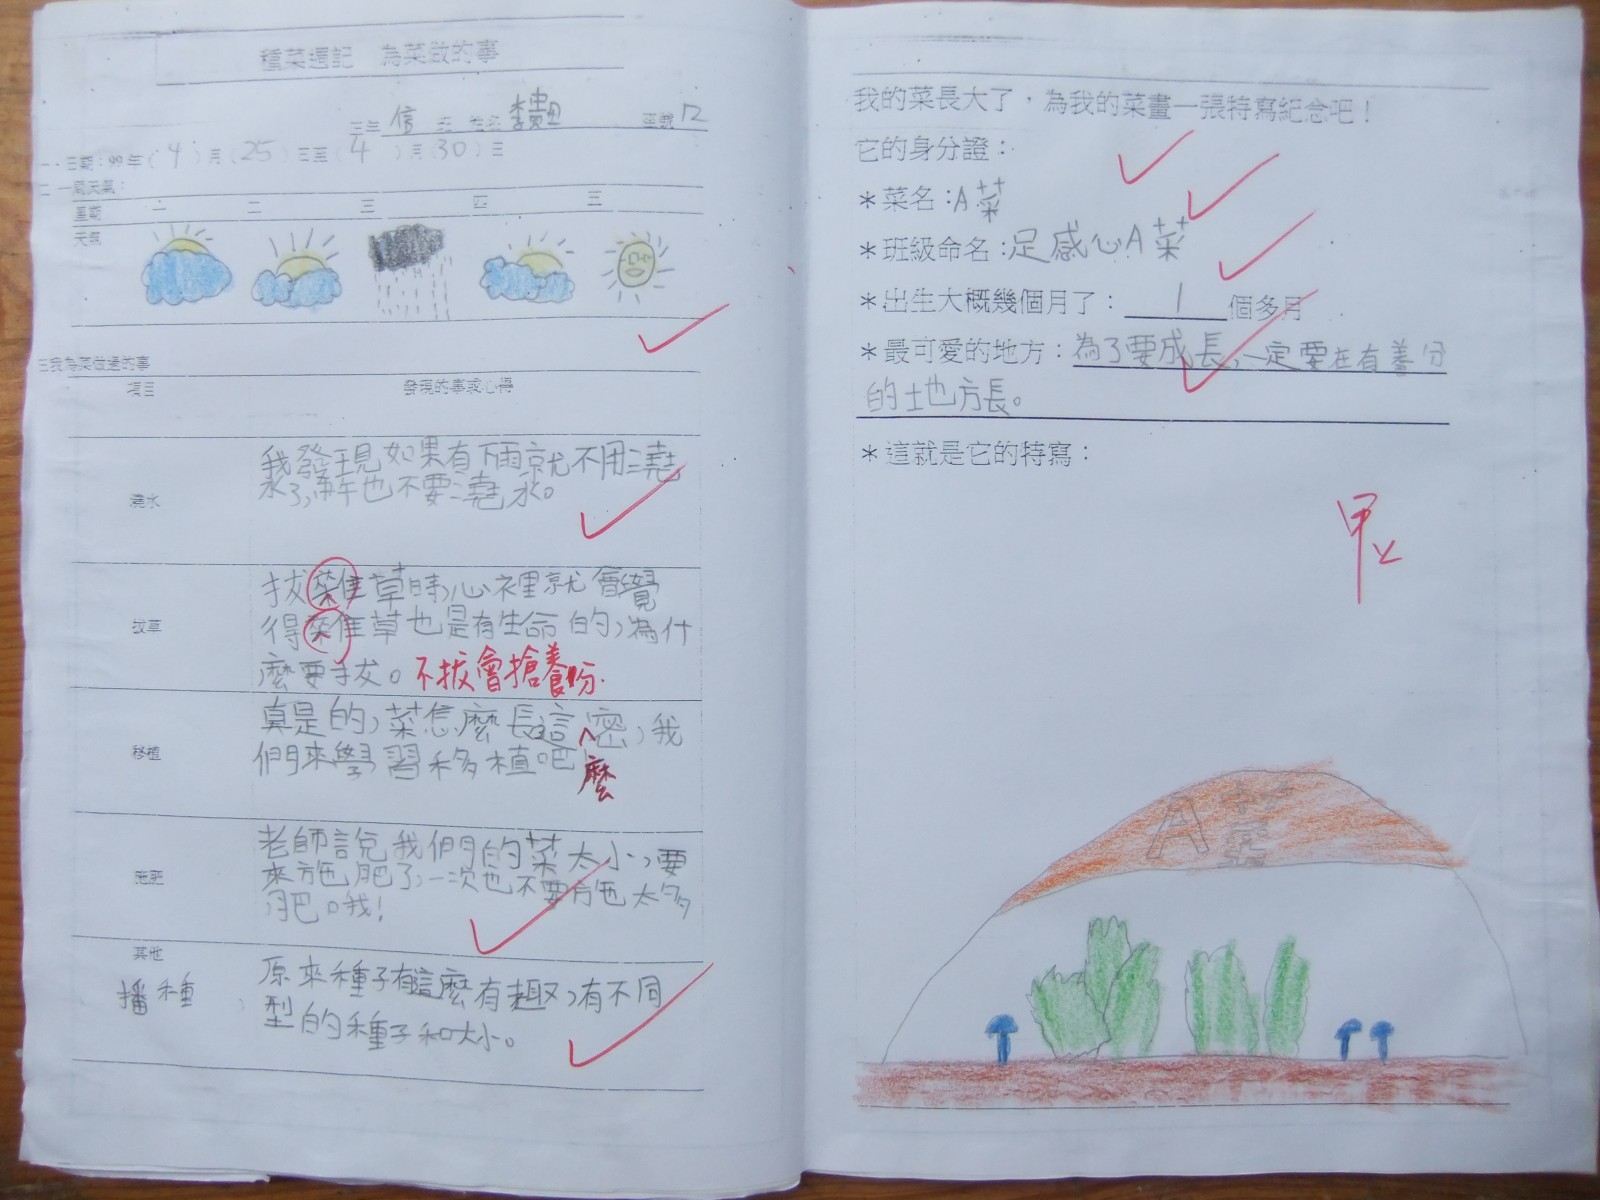 種菜週記 為菜做的事
三年 信 班 姓名 座號 12
一、日期:99年(4)月(25)日至(4)月(30)日
二 一周天氣:
星期 一 二 三 四 五
天氣
三我為菜做過的事
項目 發現的事或心得
澆水
我發現如果有下雨就不用澆
水了,中午也不要澆水。
拔草
拔雜草時,心裡就會覺
得雜草也是有生命的,為什
麼要拔。不拔會搶養份.
移植
真是的,菜怎麼長這密,我
麼
們來學習移植吧!
施肥
老師說我們的菜太小,要
來施肥了,一次也不要施太多
肥。哦!
其他
播種
原來種子有這麼有趣,有不同
型的種子和大小。
我的菜長大了,為我的菜畫一張特寫紀念吧!
它的身分證:
*菜名:A菜
*班級命名:足感心A菜
*出生大概幾個月了: 1 個多月
*最可愛的地方:為了要成長,一定要在有養分
的土地方長。
*這就是它的特寫:
甲上
A菜